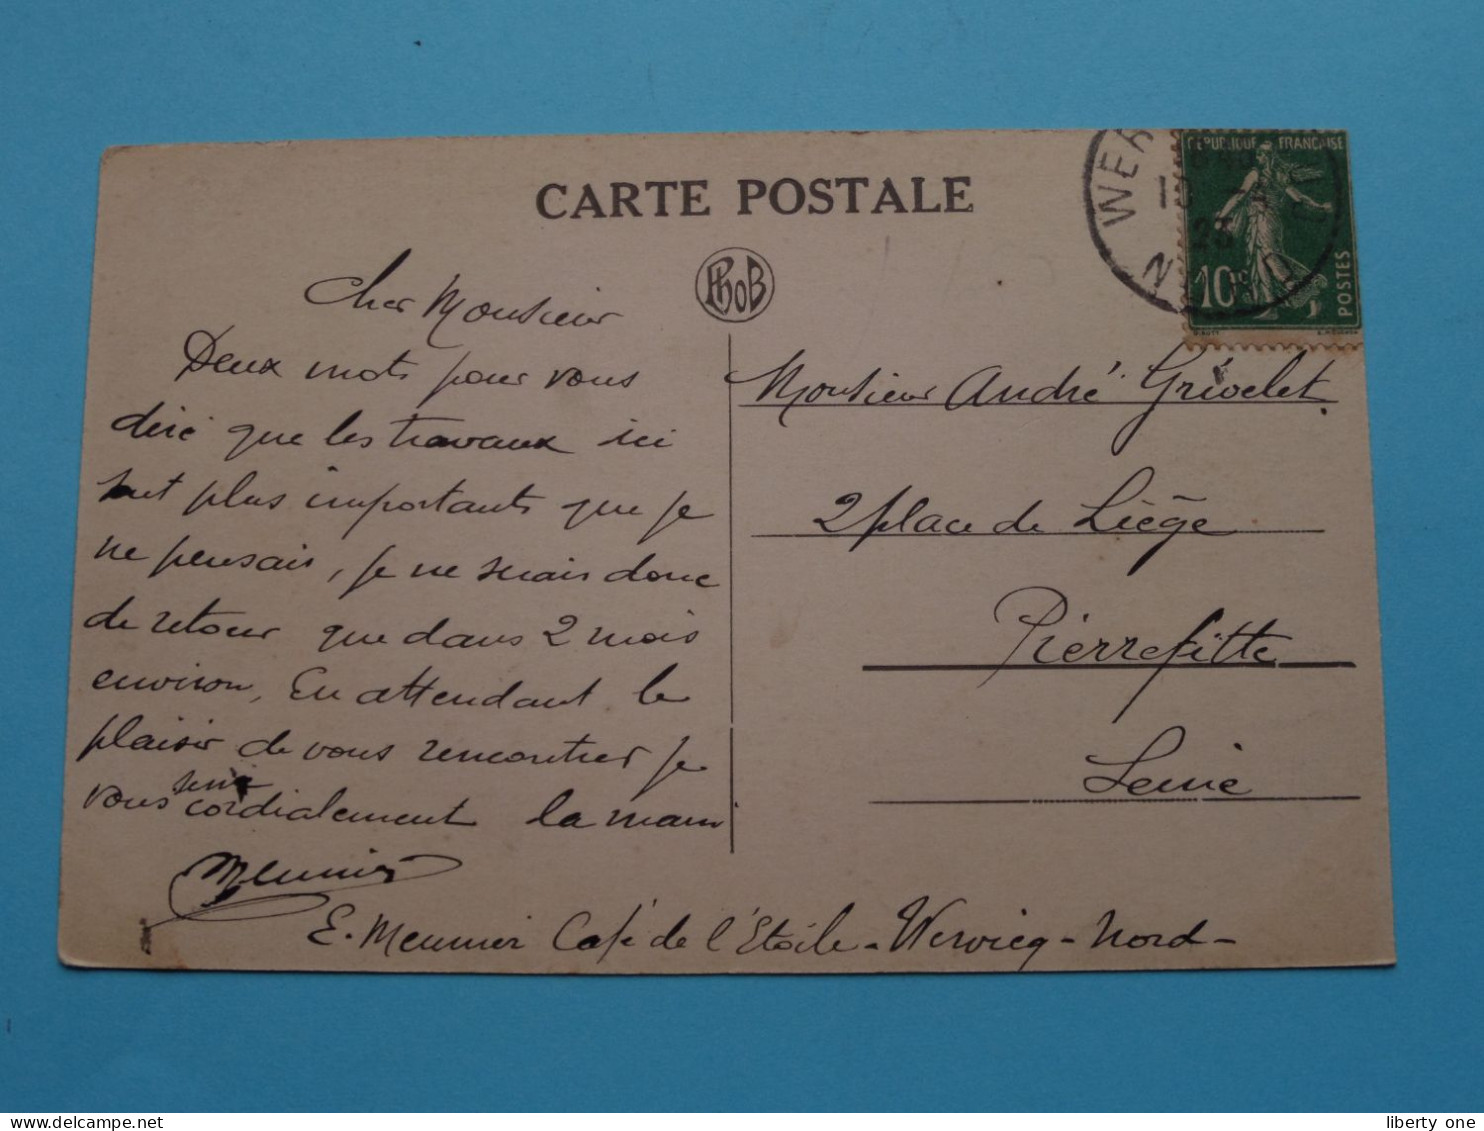 CARTE POSTALE
PhoB
REPUBLIQUE FRANÇAISE
10c
POSTES
WER
23
Cher Monsieur
Deux mots pour vous
dire que les travaux ici
sont plus importants que je
ne pensais, je ne serais donc
de retour que dans 2 mois
environ, En attendant le
plaisir de vous rencontrer je
vous serre cordialement la main
Meunier
E. Meunier Café de l'Etoile - Wervicq - Nord -
Monsieur André Grivelet
2 place de Liège
Pierrefitte
Seine
liberty one